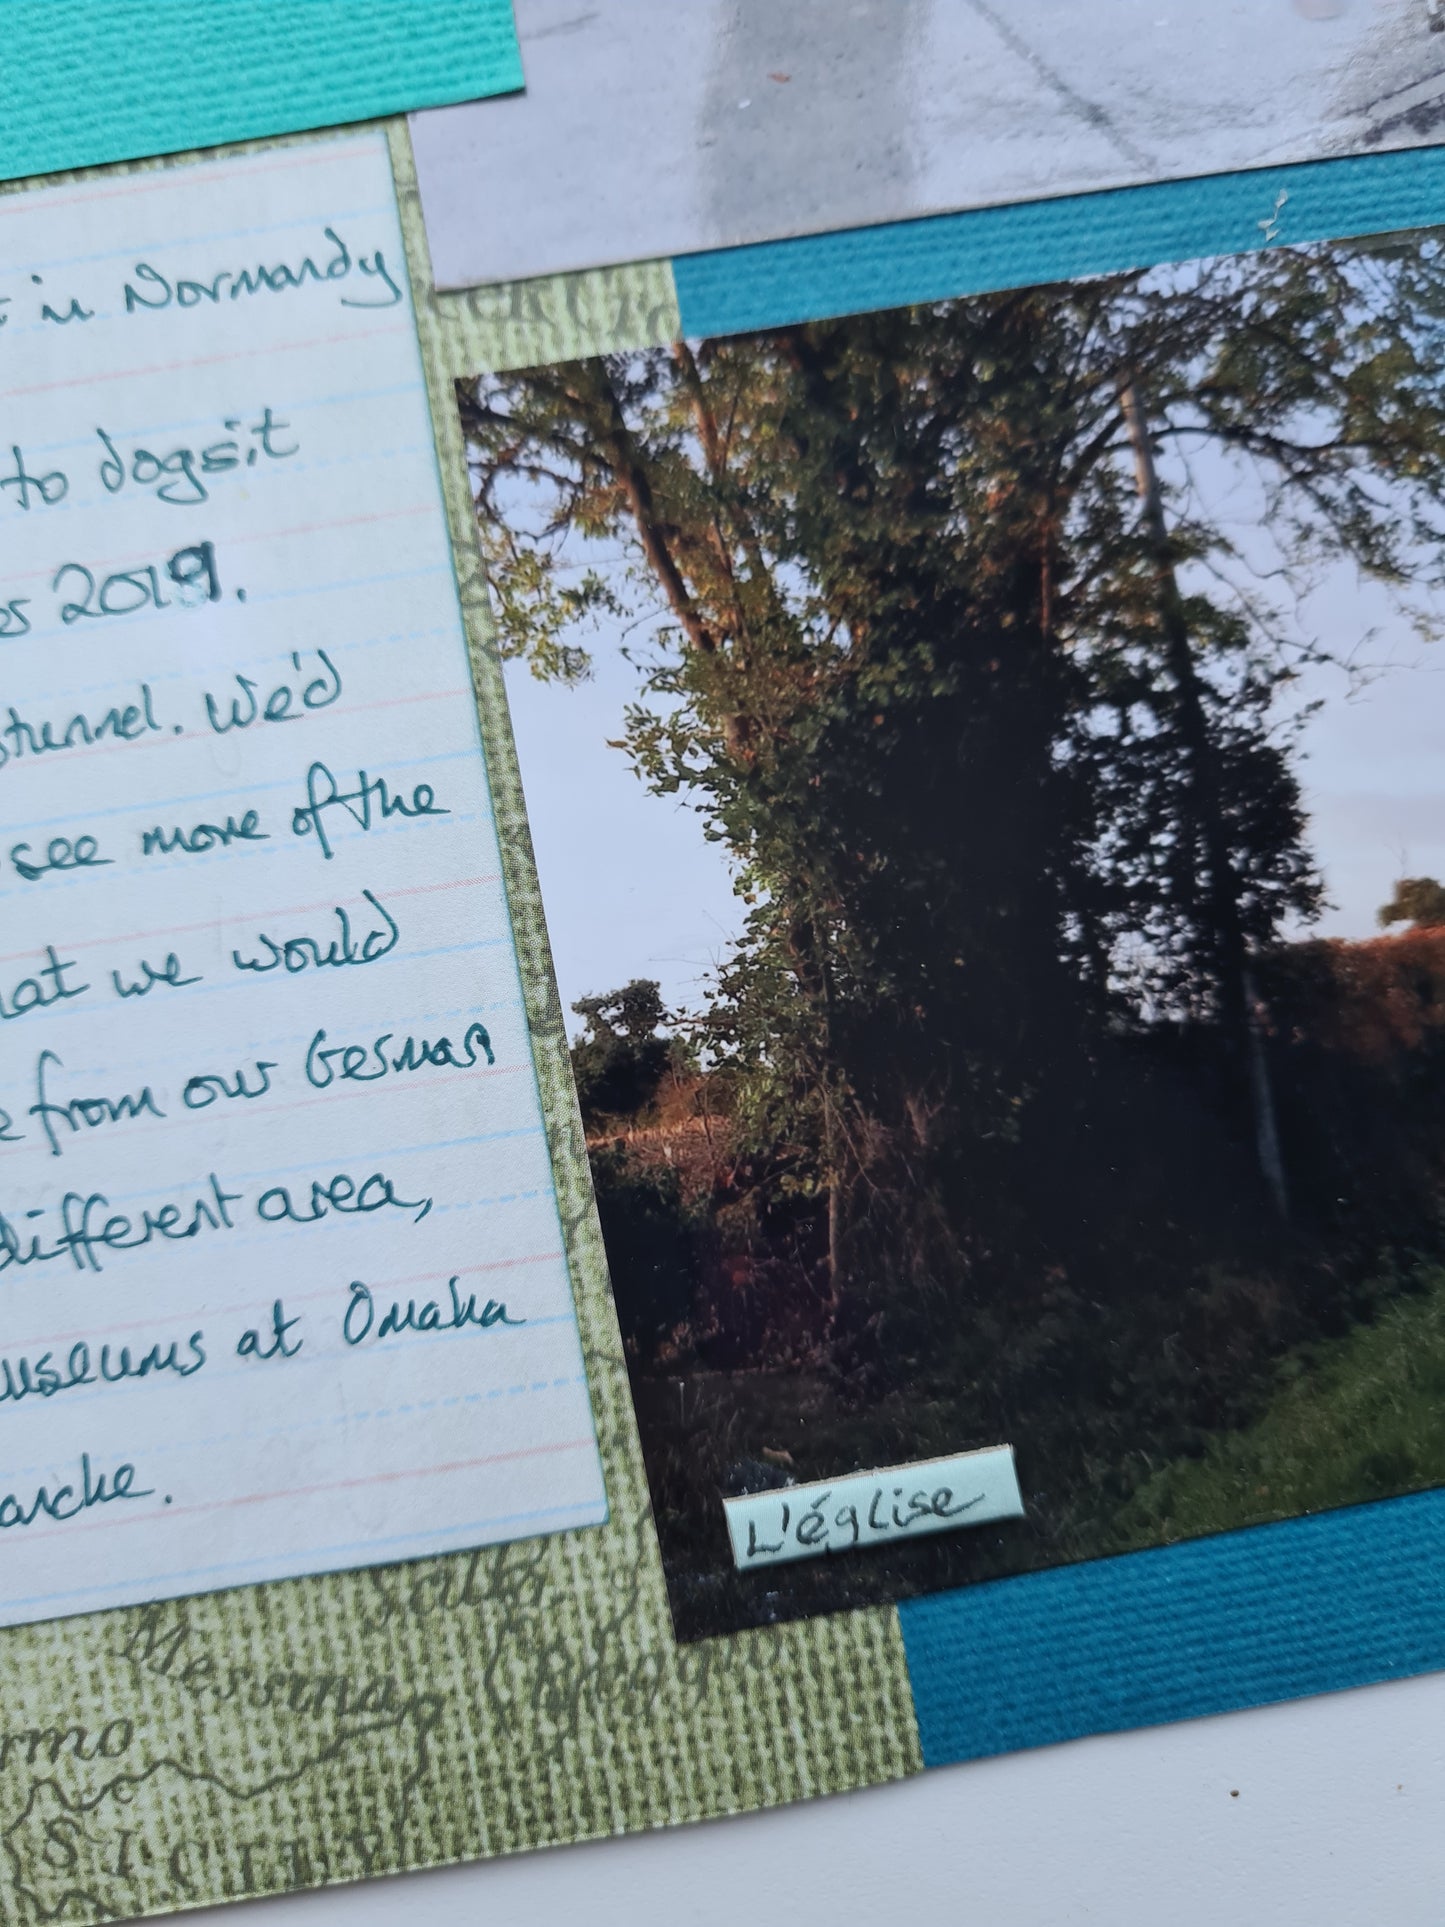 in Normandy
to dogsit
2019.
tunnel. We'd
see more of the
at we would
from our German
different area,
useums at Omaha
arche.
L'église
Messina
Reggio
rmo
SICILY